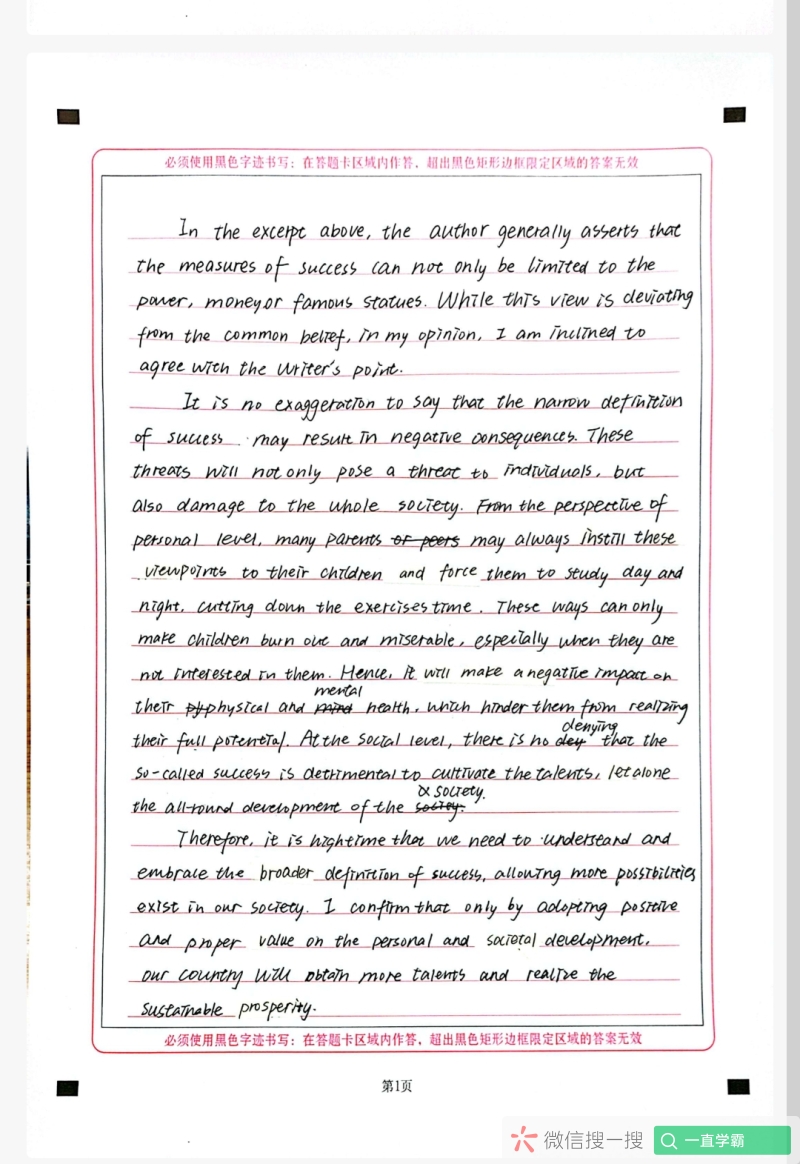 必须使用黑色字迹书写：在答题卡区域内作答，超出黑色矩形边框限定区域的答案无效
In the excerpt above, the author generally asserts that
the measures of success can not only be limited to the
power, money or famous statues. While this view is deviating
from the common belief, in my opinion, I am inclined to
agree with the writer's point.
It is no exaggeration to say that the narrow definition
of success may result in negative consequences. These
threats will not only pose a threat to individuals, but
also damage to the whole society. From the perspective of
personal level, many parents or peers may always instill these
viewpoints to their children and force them to study day and
night, cutting down the exercises time. These ways can only
make children burn out and miserable, especially when they are
not interested in them. Hence, it will make a negative impact on
mental
their physical and mind health, which hinder them from realizing
denying
their full potential. At the social level, there is no dey that the
so-called success is detrimental to cultivate the talents, let alone
society.
the all-round development of the
Therefore, it is high time that we need to understand and
embrace the broader definition of success, allowing more possibilities
exist in our society. I confirm that only by adopting positive
and proper value on the personal and societal development,
our country will obtain more talents and realize the
sustainable prosperity.
必须使用黑色字迹书写：在答题卡区域内作答，超出黑色矩形边框限定区域的答案无效
第1页
微信搜一搜
一直学霸